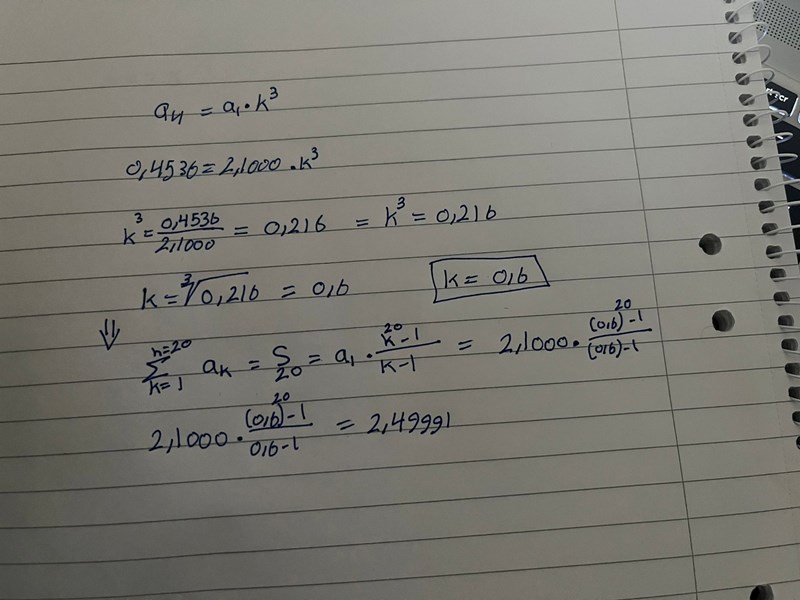 a₄ = a₁ · k³
0,4536 = 2,1000 · k³
k³ = 0,4536/2,1000 = 0,216 = k³ = 0,216
k = ∛0,216 = 0,6 k = 0,6
⇓ ∑ n=20 k=1 aₖ = S₂₀ = a₁ · (k²⁰-1)/(k-1) = 2,1000 · ((0,6)²⁰-1)/((0,6)-1)
2,1000 · ((0,6)²⁰-1)/(0,6-1) = 2,49991